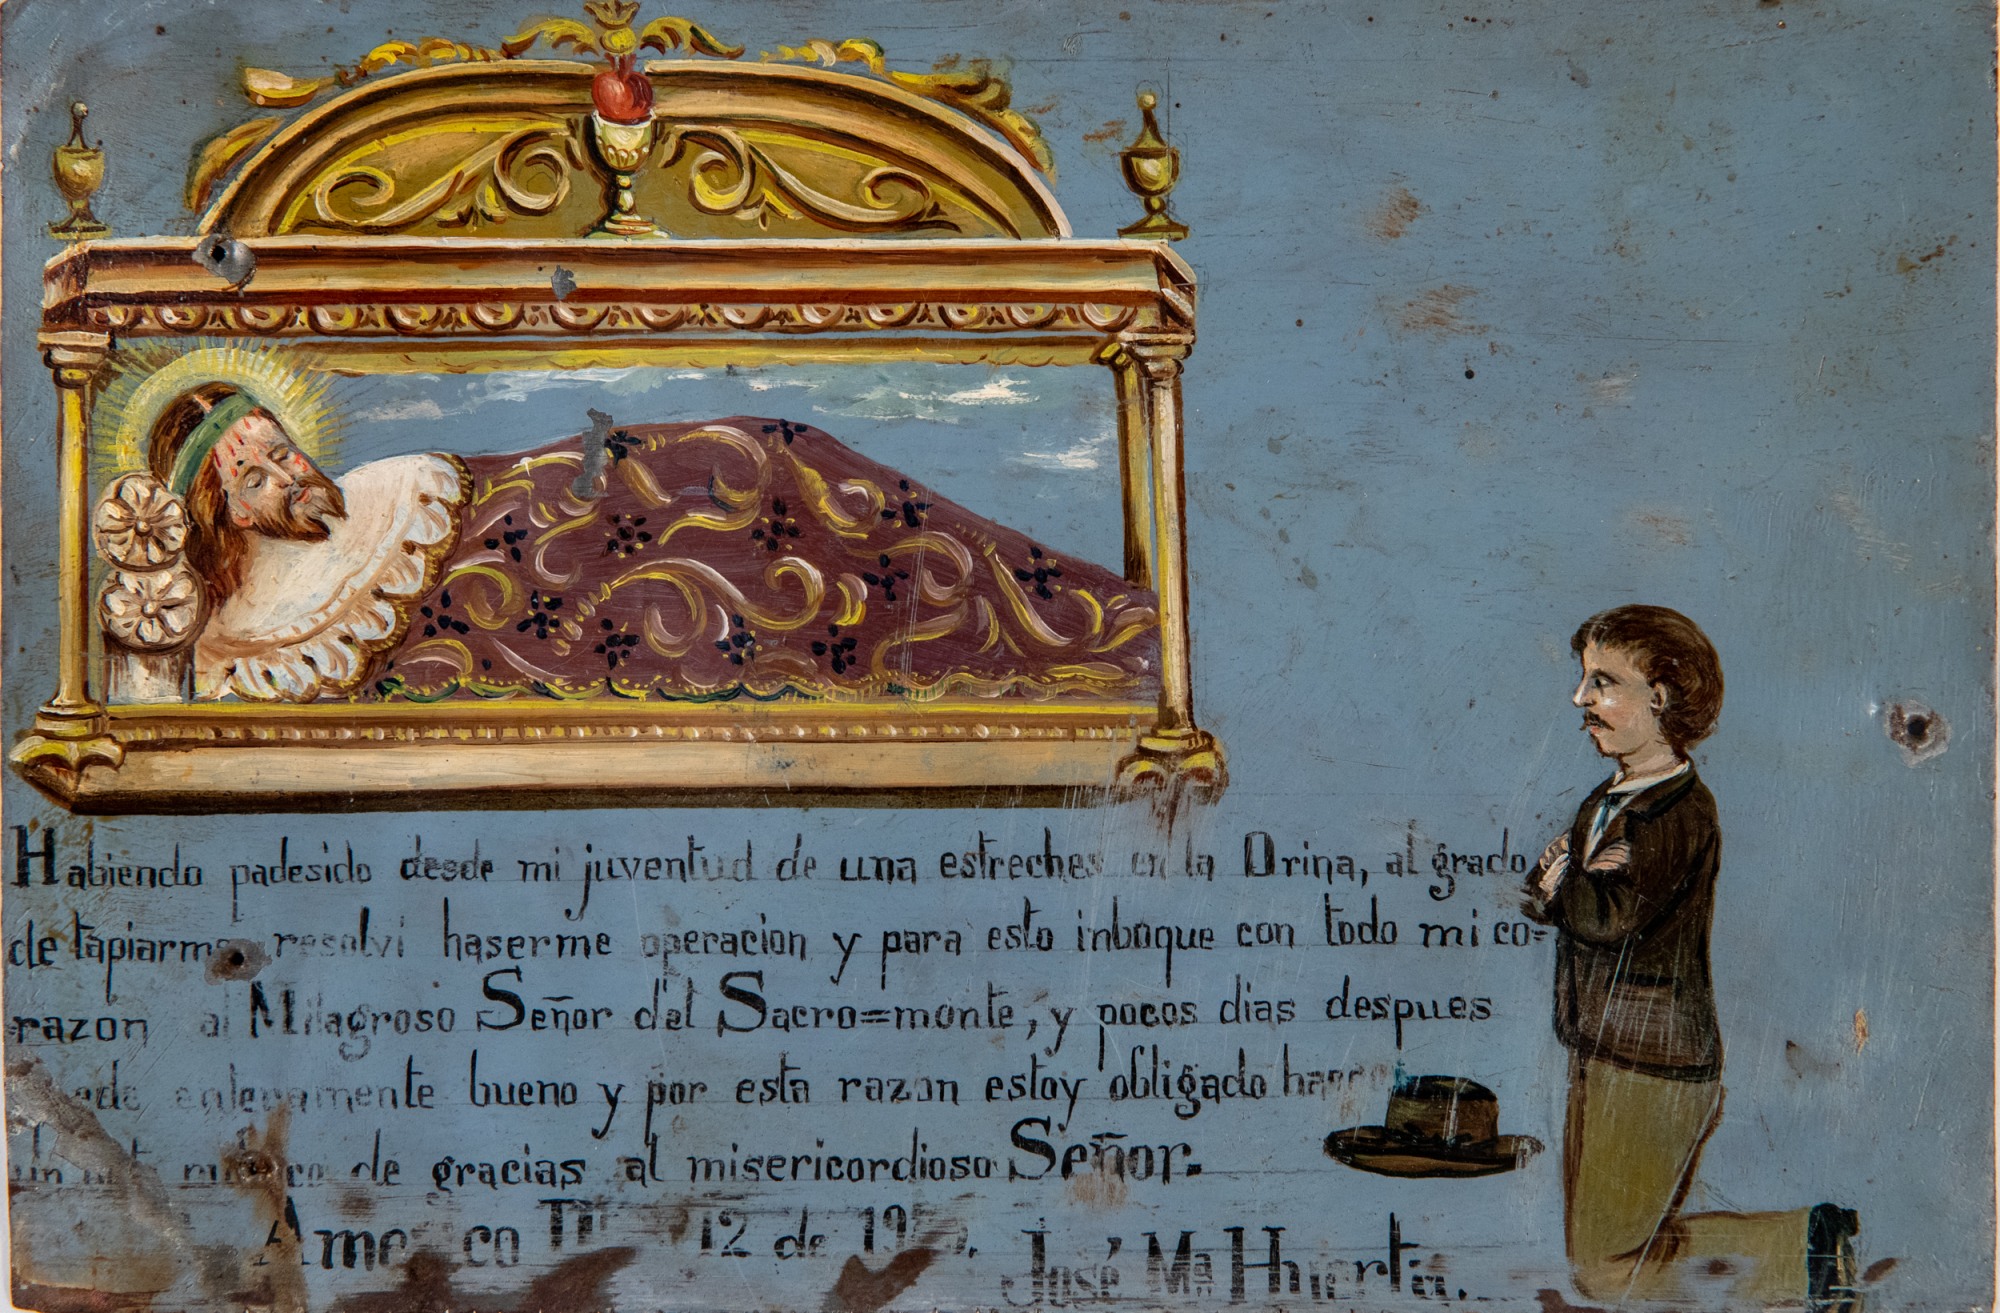 Habiendo padesido desde mi juventud de una estreches en la Orina, al grado
de tapiarme resolvi haserme operacion y para esto inboque con todo mi co=
razon al Milagroso Señor del Sacro=monte, y pocos dias despues
enteramente bueno y por esta razon estoy obligado
de gracias al misericordioso Señor.
12 de
José Mª Huerta.